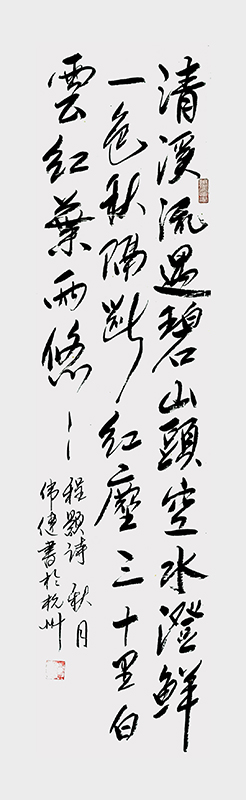 清溪流過碧山頭空水澄鮮
一色秋隔斷紅塵三十里白
雲紅葉兩悠〻
程颢詩 秋月
伟健書於杭州